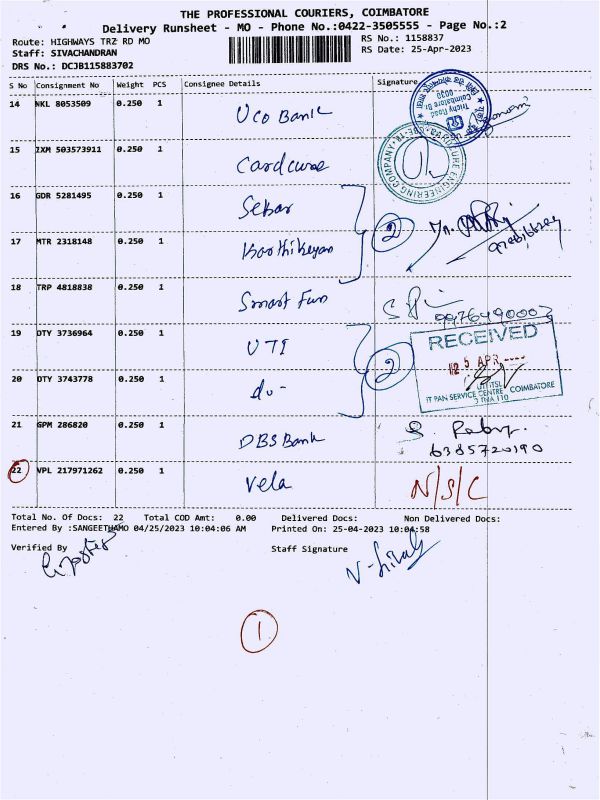 THE PROFESSIONAL COURIERS, COIMBATORE
Delivery Runsheet - MO - Phone No.:0422-3505555 - Page No.:2
Route: HIGHWAYS TRZ RD MO RS No.: 1158837
Staff: SIVACHANDRAN RS Date: 25-Apr-2023
DRS No.: DCJB115883702
S No Consignment No Weight PCS Consignee Details Signature
14 NKL 8053509 0.250 1 UCO Bank
Trichy Road
Coimbatore Br
0030
15 IXM 503573911 0.250 1 Cardcure
ENGINEERING COMPANY
16 GDR 5281495 0.250 1 Sekar
2
17 MTR 2318148 0.250 1 Karthikeyan
18 TRP 4818838 0.250 1 Smart Fun
9976490002
19 DTY 3736964 0.250 1 UTI
RECEIVED
25 APR
2
20 DTY 3743778 0.250 1 do-
UTIITSL
IT PAN SERVICE CENTRE COIMBATORE
21 GPM 286820 0.250 1 DBS Bank
6385720190
22 VPL 217971262 0.250 1 Vela N/S/C
Total No. Of Docs: 22 Total COD Amt: 0.00 Delivered Docs: Non Delivered Docs:
Entered By :SANGEETHAMO 04/25/2023 10:04:06 AM Printed On: 25-04-2023 10:04:58
Verified By Staff Signature
1